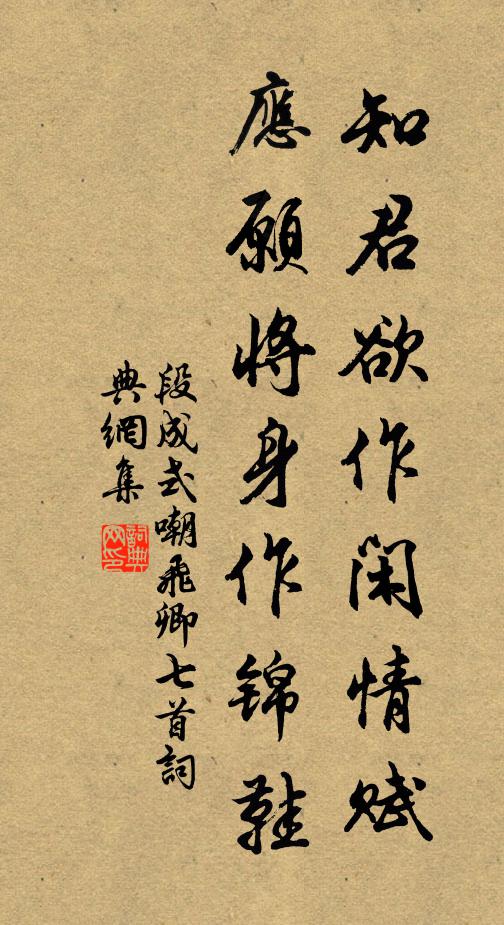 知君欲作闲情赋
應願將身作锦鞋
段成式嘲飛卿七首詞
典網集
詞典
网印